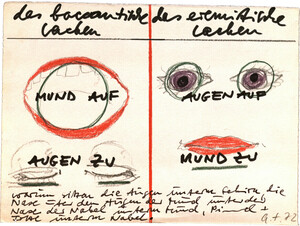 das bacoantische
Lachen
das eremitische
Lachen
MUND AUF
AUGEN AUF
AUGEN ZU
MUND ZU
warum sitzen die Augen unterm Gehirn die
Nase unter den Augen der Mund unter der
Nase der Nabel unterm Mund,
unterm Nabel.
72